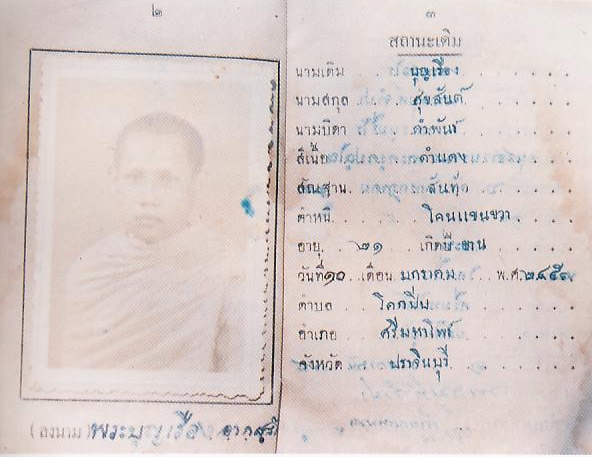 ๒
(ลงนาม) พระบุญเรือง
๓
สถานะเดิม
นามเดิม บุญเรือง
นามสกุล สุขสันต์
นามบิดา
สีเนื้อ ดำแดง
สัณฐาน สันทัด
ตำหนิ โคนแขนขวา
อายุ ๒๑ เกิดปี ขาน
วันที่ ๑๐ เดือน มกราคม พ.ศ.
ตำบล โคกปีบ
อำเภอ ศรีมหาโพธิ์
จังหวัด ปราจีนบุรี